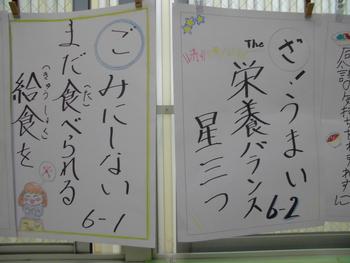 の気持ちわすれずに
The
ざ・うまい
栄養バランス
星三つ
6-2
ごみにしない
まだ食べられる
(た)
給食を
(きゅうしょく)
6-1